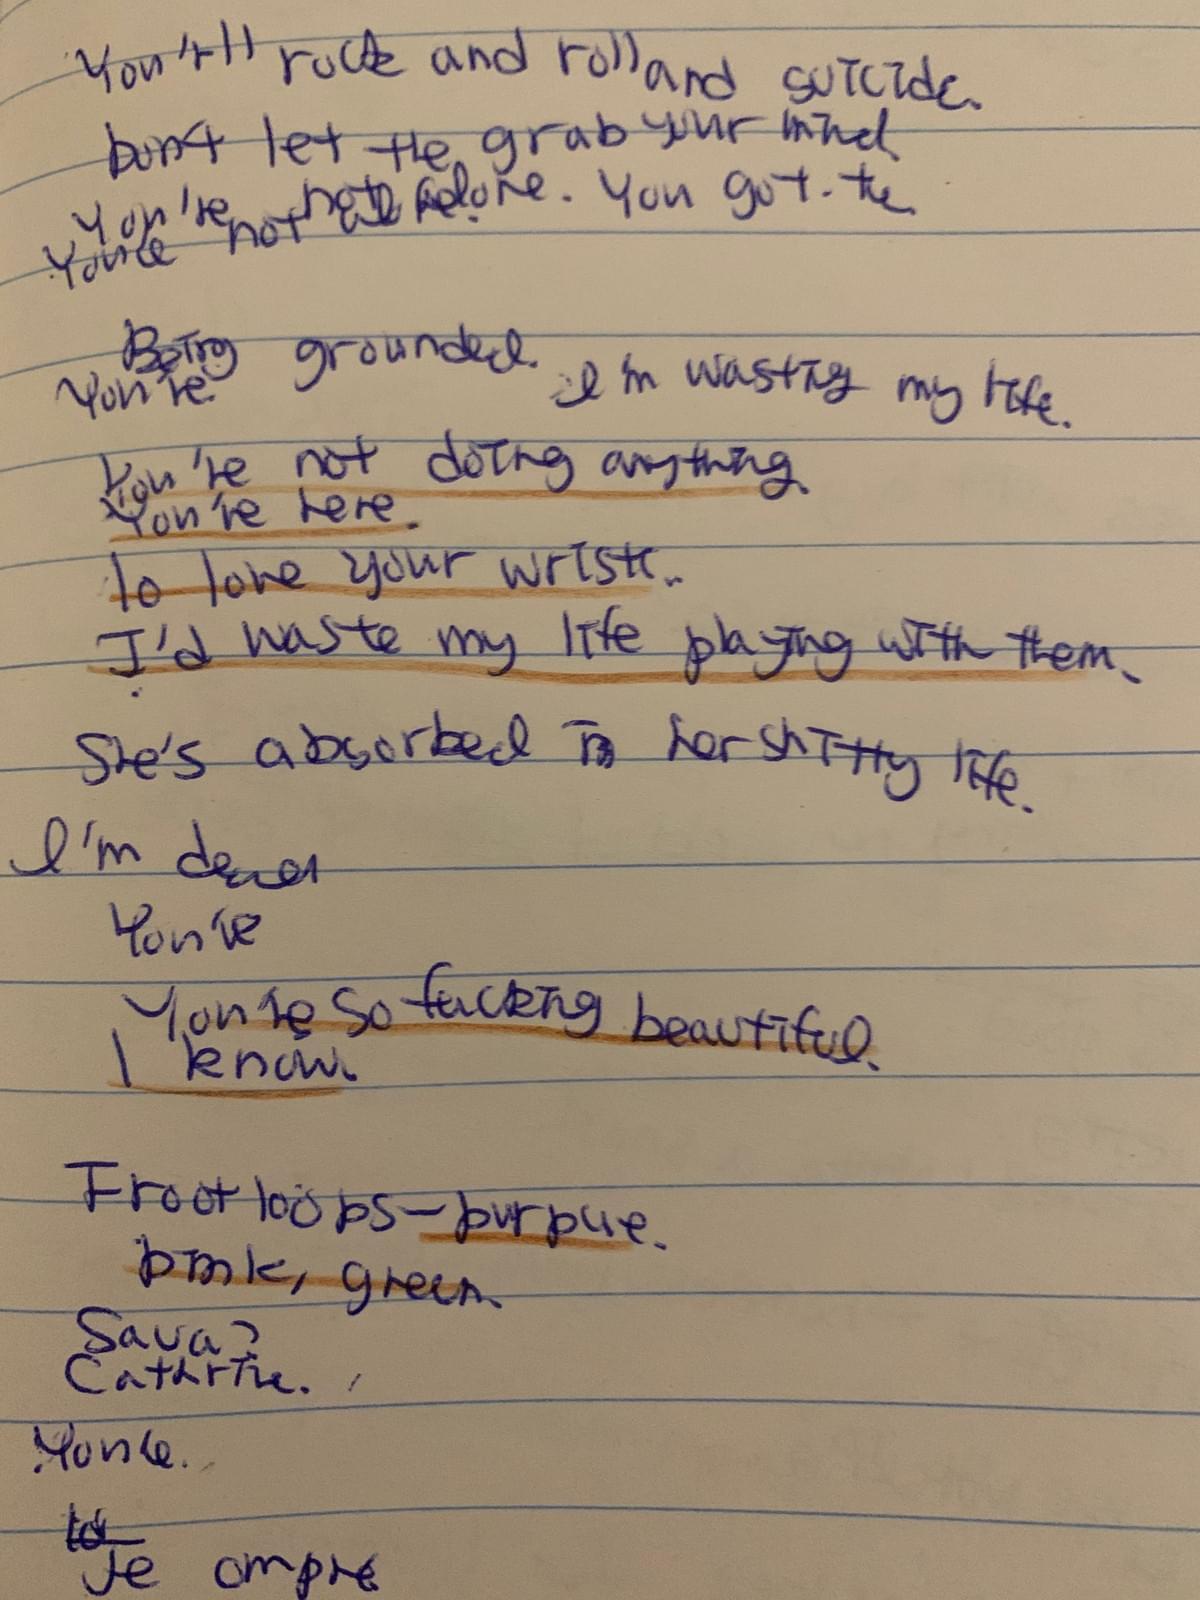 You'll rock and roll and suicide.
Don't let the grab your mind
You're not alone. You got the
You're not
Being grounded.
You're. I'm wasting my life.
You're not doing anything
You're here.
To love your wrists..
I'd waste my life playing with them.
She's absorbed in her shitty life.
I'm
You're
You're so fucking beautiful.
I know.
Froot loops - purpue.
pink, green
Sava?
Cathrine.
You're.
Je ompre